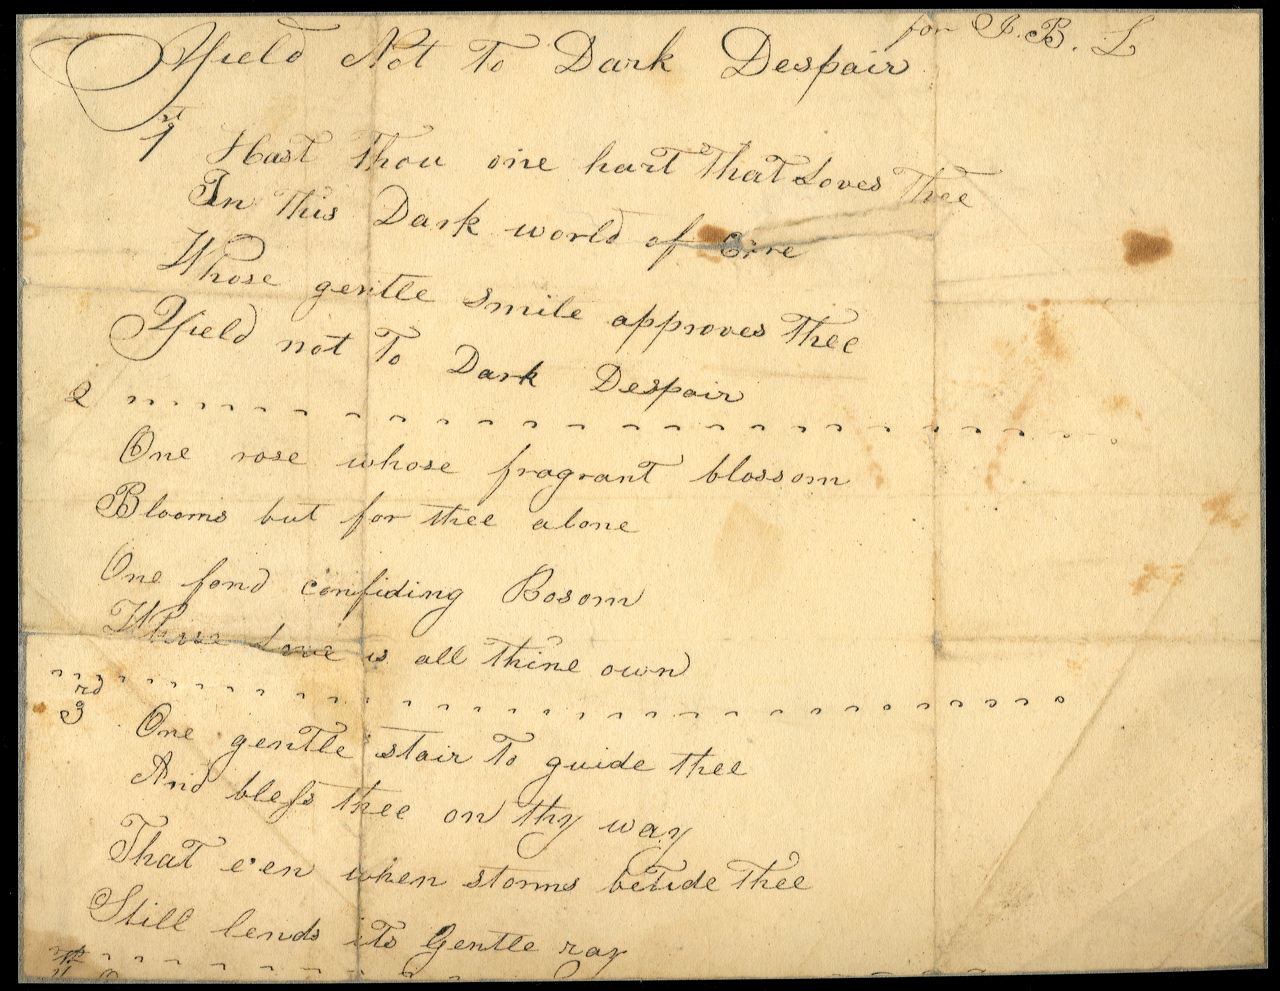 for J. B. L
Yield Not To Dark Despair
1st
Hast Thou one hart That Loves Thee
In This Dark world of Care
Whose gentle Smile approves Thee
Yield not To Dark Despair
2
One rose whose fragrant blossom
Blooms but for thee alone
One fond confiding Bosom
Whose Love is all thine own
3rd
One gentle stair To guide thee
And bless thee on thy way
That e'en when storms betide Thee
Still lends its Gentle ray